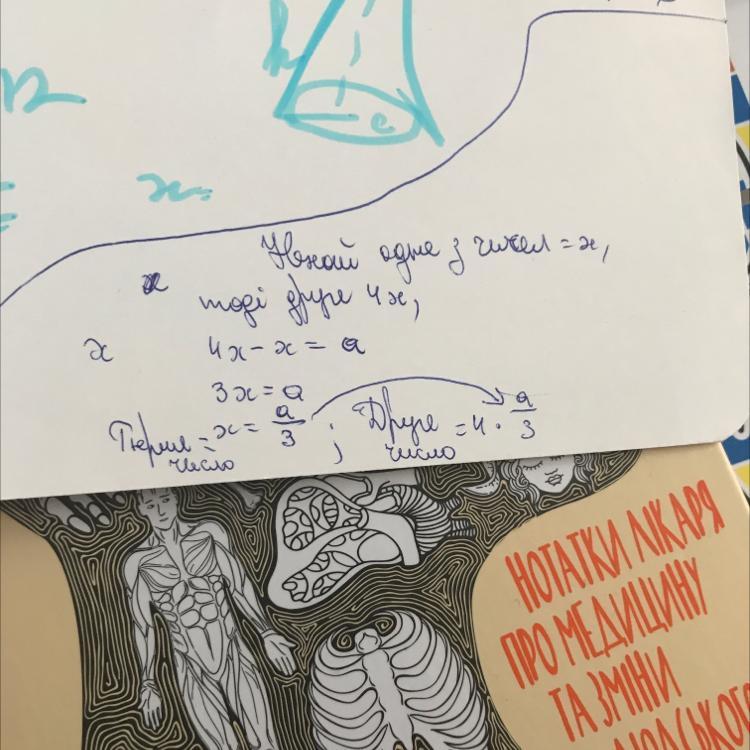 x=
Нехай одне з чисел = x,
x
тоді друге 4x,
x
4x - x = a
3x = a
Перше число = x = a/3 ; Друге число = 4 · a/3
НОТАТКИ ЛІКАРЯ
ПРО МЕДИЦИНУ
ТА ЗМІНИ